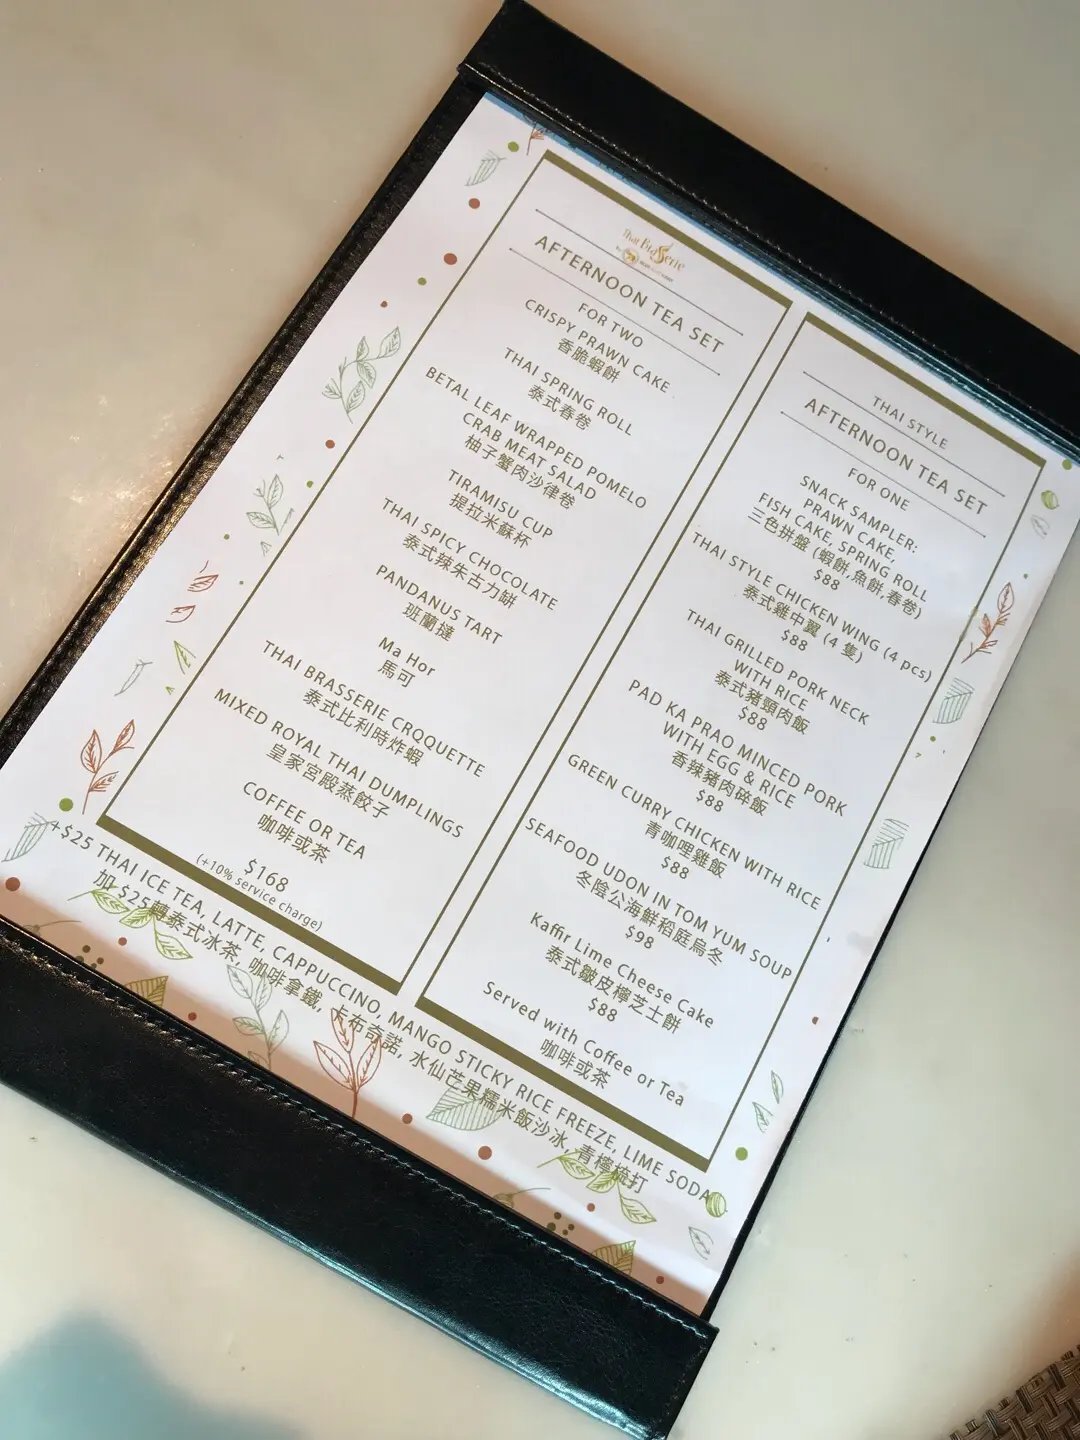 Thai Brasserie
AFTERNOON TEA SET
FOR TWO
CRISPY PRAWN CAKE
香脆蝦餅
THAI SPRING ROLL
泰式春卷
BETAL LEAF WRAPPED POMELO
CRAB MEAT SALAD
柚子蟹肉沙律卷
TIRAMISU CUP
提拉米蘇杯
THAI SPICY CHOCOLATE
泰式辣朱古力餅
PANDANUS TART
班蘭撻
Ma Hor
馬可
THAI BRASSERIE CRQQUETTE
泰式比利時炸蝦
MIXED ROYAL THAI DUMPLINGS
皇家宮殿蒸餃子
COFFEE OR TEA
咖啡或茶
$168
(+10% service charge)
THAI STYLE
AFTERNOON TEA SET
FOR ONE
SNACK SAMPLER:
PRAWN CAKE,
FISH CAKE, SPRING ROLL
三色拼盤 (蝦餅,魚餅,春卷)
$88
THAI STYLE CHICKEN WING (4 pcs)
泰式雞中翼 (4 隻)
$88
THAI GRILLED PORK NECK
WITH RICE
泰式豬頸肉飯
$88
PAD KA PRAO MINCED PORK
WITH EGG & RICE
香辣豬肉碎飯
$88
GREEN CURRY CHICKEN WITH RICE
青咖哩雞飯
$88
SEAFOOD UDON IN TOM YUM SOUP
冬陰公海鮮稻庭烏冬
$98
Kaffir Lime Cheese Cake
泰式皺皮檸芝士餅
$88
Served with Coffee or Tea
咖啡或茶
+$25 THAI ICE TEA, LATTE, CAPPUCCINO, MANGO STICKY RICE FREEZE, LIME SODA
加 $25轉泰式冰茶, 咖啡拿鐵, 卡布奇諾, 水仙芒果糯米飯沙冰, 青檸梳打